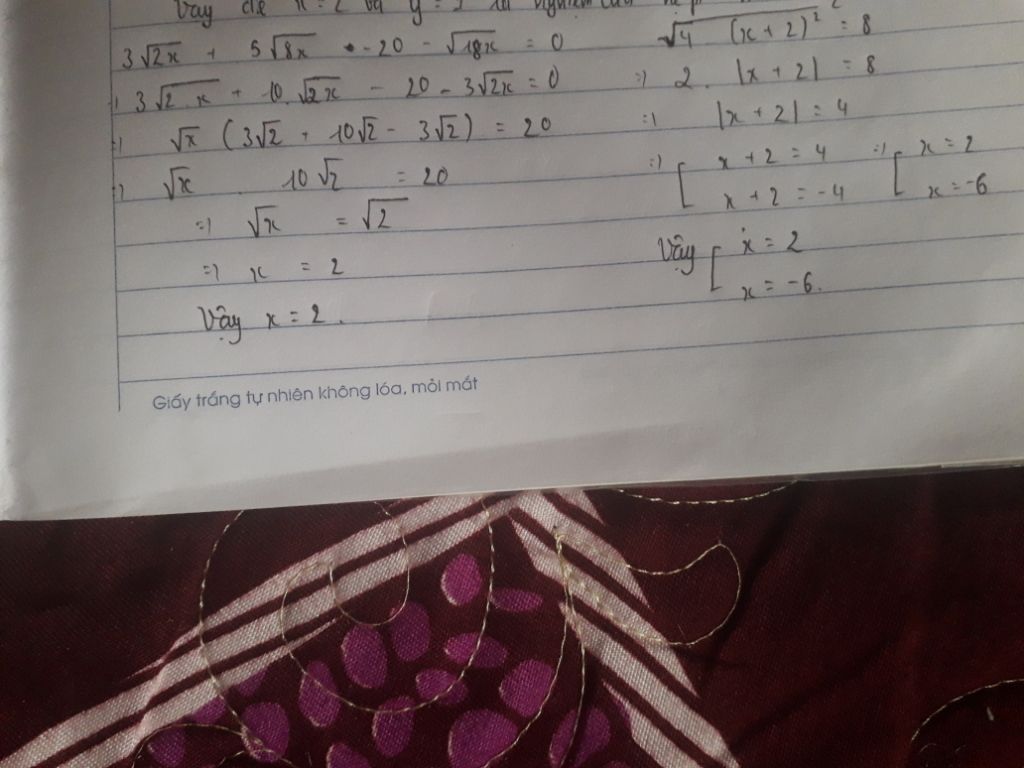 Vậy để x = 2 và y =
3√2x + 5√8x - 20 - √18x = 0
⇒ 3√2.x + 10.√2x - 20 - 3√2x = 0
⇒ √x (3√2 + 10√2 - 3√2) = 20
⇒ √x . 10√2 = 20
⇒ √x = √2
⇒ x = 2
Vậy x = 2.
√4 (x+2)² = 8
⇒ 2. |x+2| = 8
⇒ |x+2| = 4
⇒ [ x+2 = 4 ⇒ [ x = 2
x+2 = -4 x = -6
Vậy [ x = 2
x = -6.
Giấy trắng tự nhiên không lóa, mỏi mắt